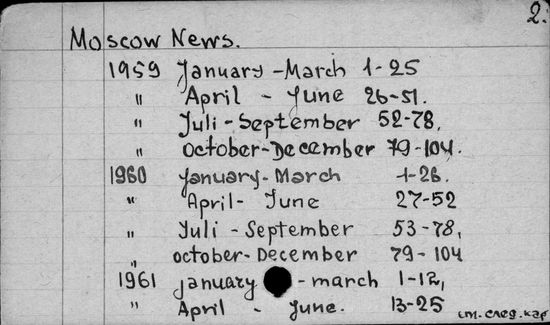 2.
Moscow News.
1959 January - March 1-25
" April - June 26-51.
" Juli - September 52-78,
" october - December 79-104.
1960 January - March 1-26.
" April - June 27-52
" Juli - September 53-78,
" october - December 79-104
1961 january - march 1-12,
" April - June. 13-25
см. след. кар